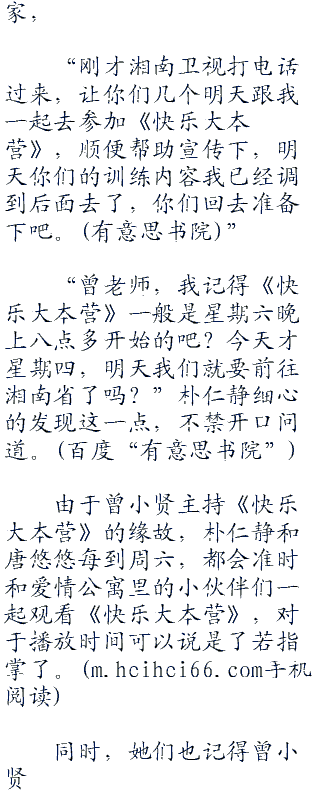 家，
“刚才湘南卫视打电话
过来，让你们几个明天跟我
一起去参加《快乐大本
营》，顺便帮助宣传下，明
天你们的训练内容我已经调
到后面去了，你们回去准备
下吧。(有意思书院)”
“曾老师，我记得《快
乐大本营》一般是星期六晚
上八点多开始的吧？今天才
星期四，明天我们就要前往
湘南省了吗？”朴仁静细心
的发现这一点，不禁开口问
道。(百度“有意思书院”)
由于曾小贤主持《快乐
大本营》的缘故，朴仁静和
唐悠悠每到周六，都会准时
和爱情公寓里的小伙伴们一
起观看《快乐大本营》，对
于播放时间可以说是了若指
掌了。(m.hcihci66.com手机
阅读)
同时，她们也记得曾小
贤